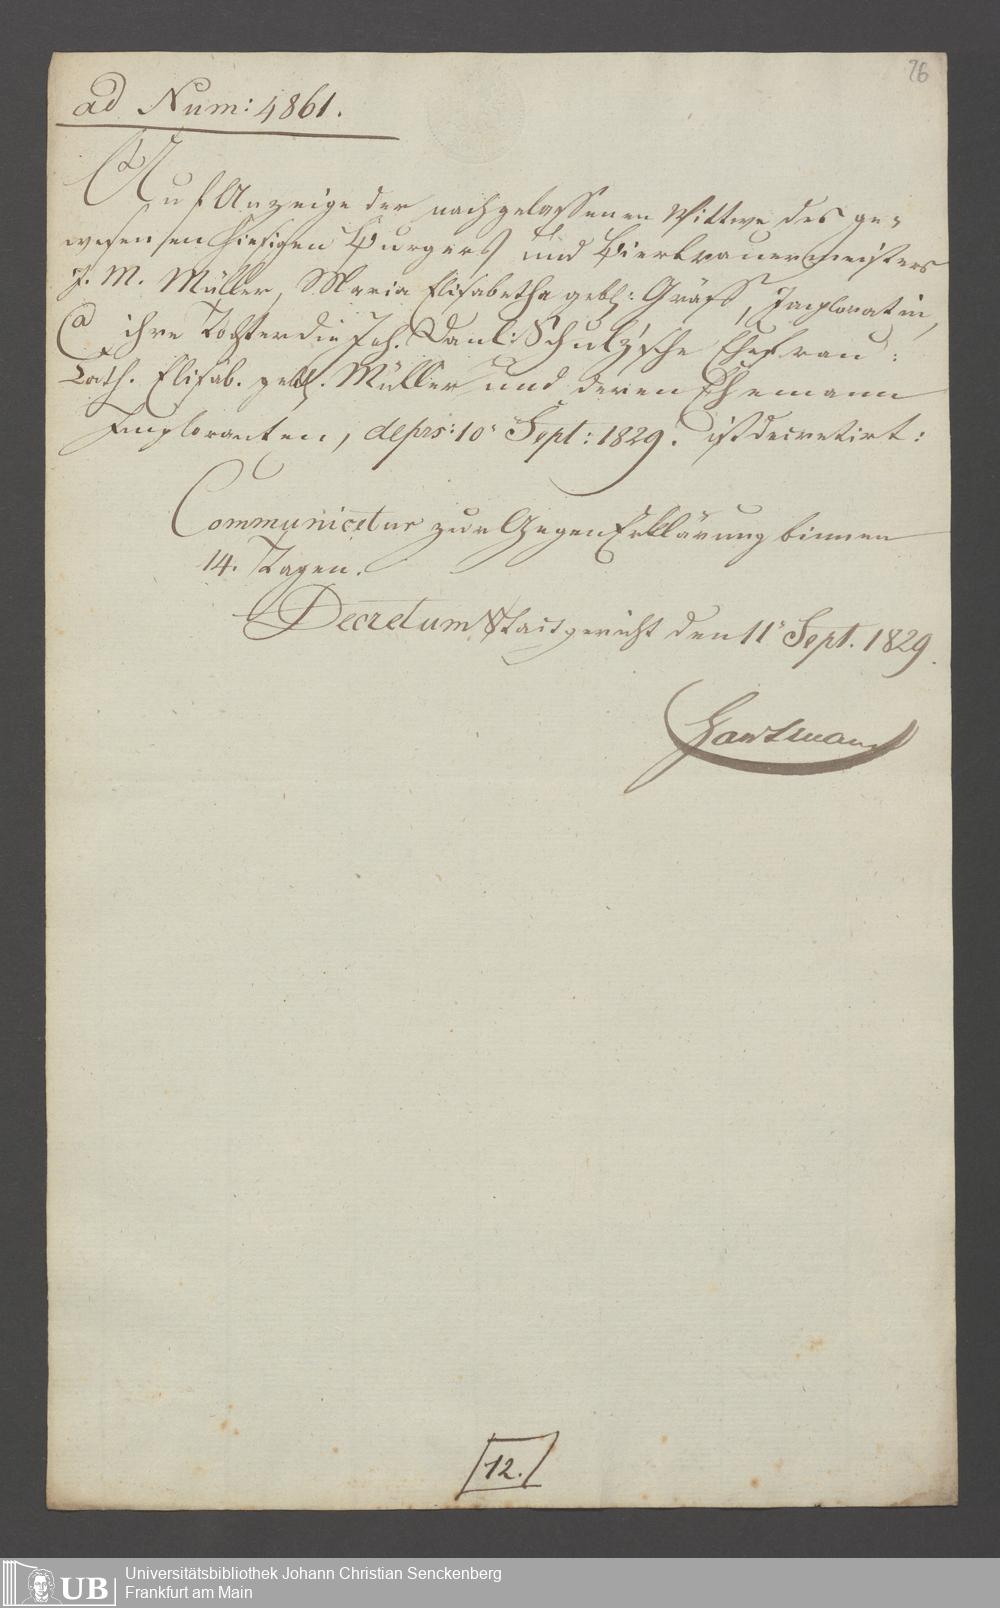 76
ad Num: 4861.
Auf Anzeige der nachgelassenen Wittwe des ge=
wesenen hiesigen Burgers und Bierbrauermeisters
J. M. Müller, Maria Elisabetha gebl: Gräff, Implorantin,
Ca ihre Tochter die Joh. Danl: Schulz'sche Ehefrau:
Cath. Elisab. gebl. Müller und deren Ehemann
Imploranten, de prs: 10 Sept: 1829. ist decretirt:
Communicetur zur GegenErklärung binnen
14. Tagen.
Decretum Stadtgericht den 11 Sept. 1829.
Hartmann
12.
UB
Universitätsbibliothek Johann Christian Senckenberg
Frankfurt am Main